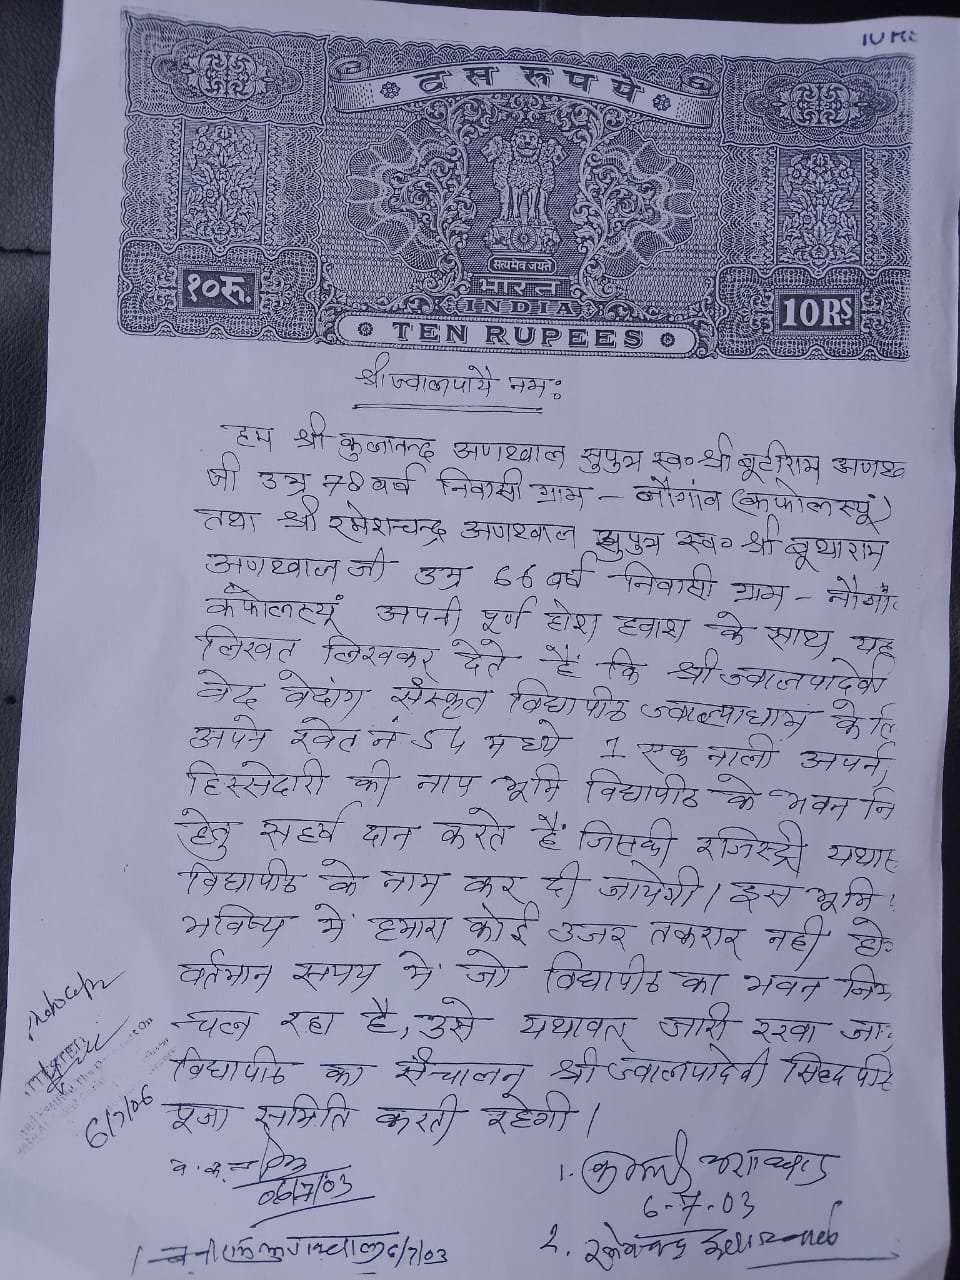 दस रुपये
सत्यमेव जयते
भारत
INDIA
१०रु.
10RS
TEN RUPEES
श्री ज्वालपायै नमः
हम श्री कुलानन्द अणथ्वाल सुपुत्र स्व० श्री बूटीराम अणथ्व
जी उम्र 78 वर्ष निवासी ग्राम - नौगांव (कफोलस्यूं)
तथा श्री रमेशचन्द्र अणथ्वाल सुपुत्र स्व० श्री बूथाराम
अणथ्वाल जी उम्र 66 वर्ष निवासी ग्राम - नौगां
कफोलस्यूं अपनी पूर्ण होश हवाश के साथ यह
लिखत लिखकर देते हैं कि श्री ज्वालपादेवी
वेद वेदांग संस्कृत विद्यापीठ ज्वाल्पाधाम के लि
अपने खेत नं 54 मध्ये 1 एक नाली अपनी
हिस्सेदारी की नाप भूमि विद्यापीठ के भवन नि
हेतु सहर्ष दान करते हैं जिसकी रजिस्ट्री यथा
विद्यापीठ के नाम कर दी जायेगी। इस भूमि
भविष्य में हमारा कोई उजर तकरार नहीं हो
वर्तमान समय में जो विद्यापीठ का भवन निम
चल रहा है, उसे यथावत् जारी रखा जा
विद्यापीठ का संचालन श्री ज्वालपादेवी सिद्धपी
पूजा समिति करती रहेगी।
6/7/06
06/7/03
1.
6-7-03
2.
6/7/03